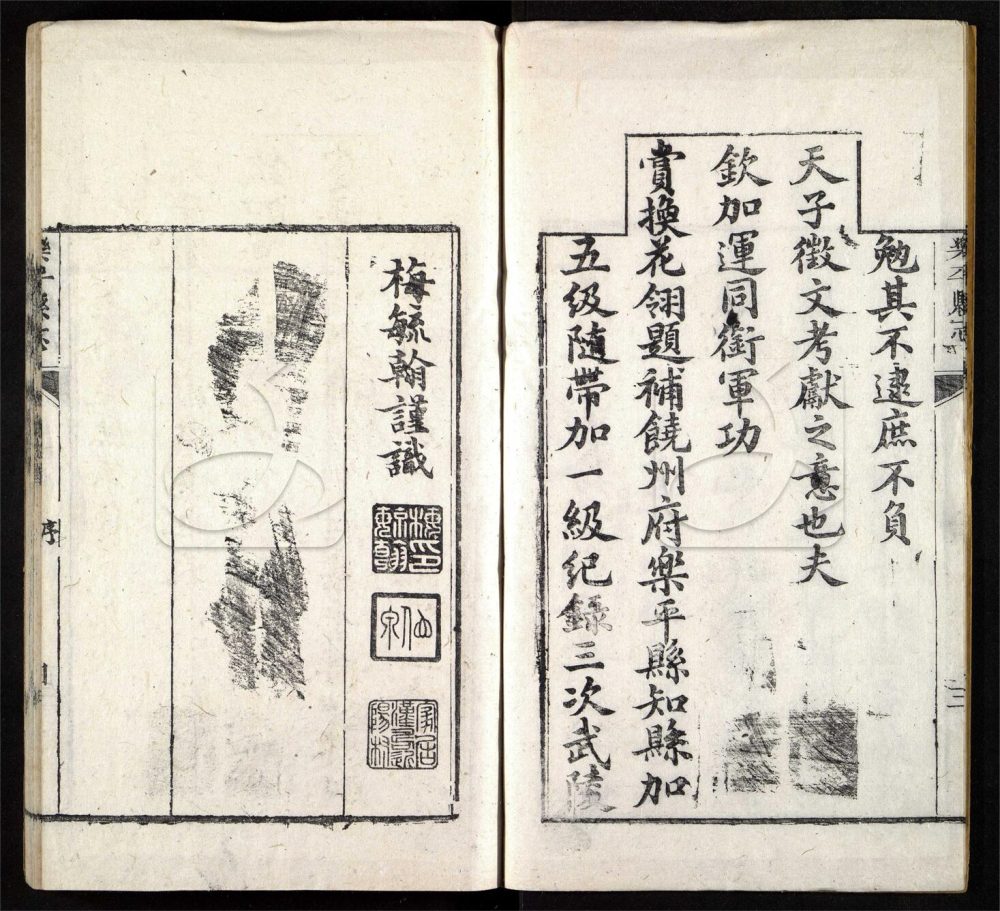 樂平縣志
三
勉其不逮庶不負
天子徵文考獻之意也夫
欽加運同銜軍功
賞換花翎題補饒州府樂平縣知縣加
五級隨帶加一級紀錄三次武陵
梅毓翰謹識
梅毓翰印
仙泉
家居
漢
陽村
樂平縣志
序
四